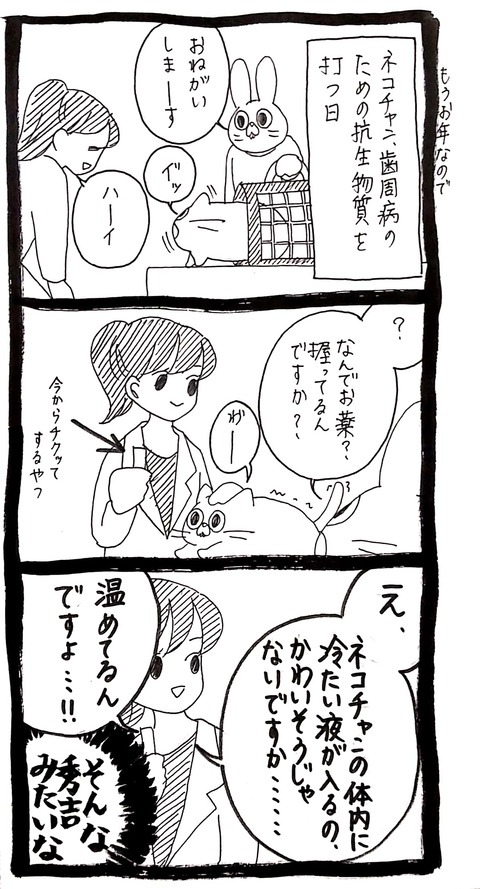 もうお年なので
ネコチャン、歯周病の
ための抗生物質を
打つ日
おねがい
しまーす
ゲッ
ハーイ
？
なんでお薬？
握ってるん
ですか？
わー
今からチクッて
するやつ
え、
ネコチャンの体内に
冷たい液が入るの、
かわいそうじゃ
ないですか……
温めてるん
ですよ…!!
そんな
秀吉
みたいな